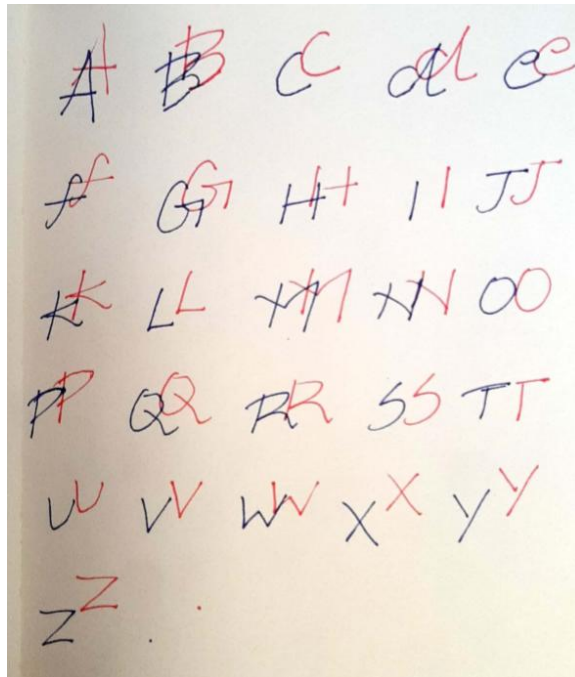 AA BB CC dd ee
ff GG HH II JJ
KK LL MM NN OO
PP QQ RR SS TT
UU VV WW XX YY
ZZ . .